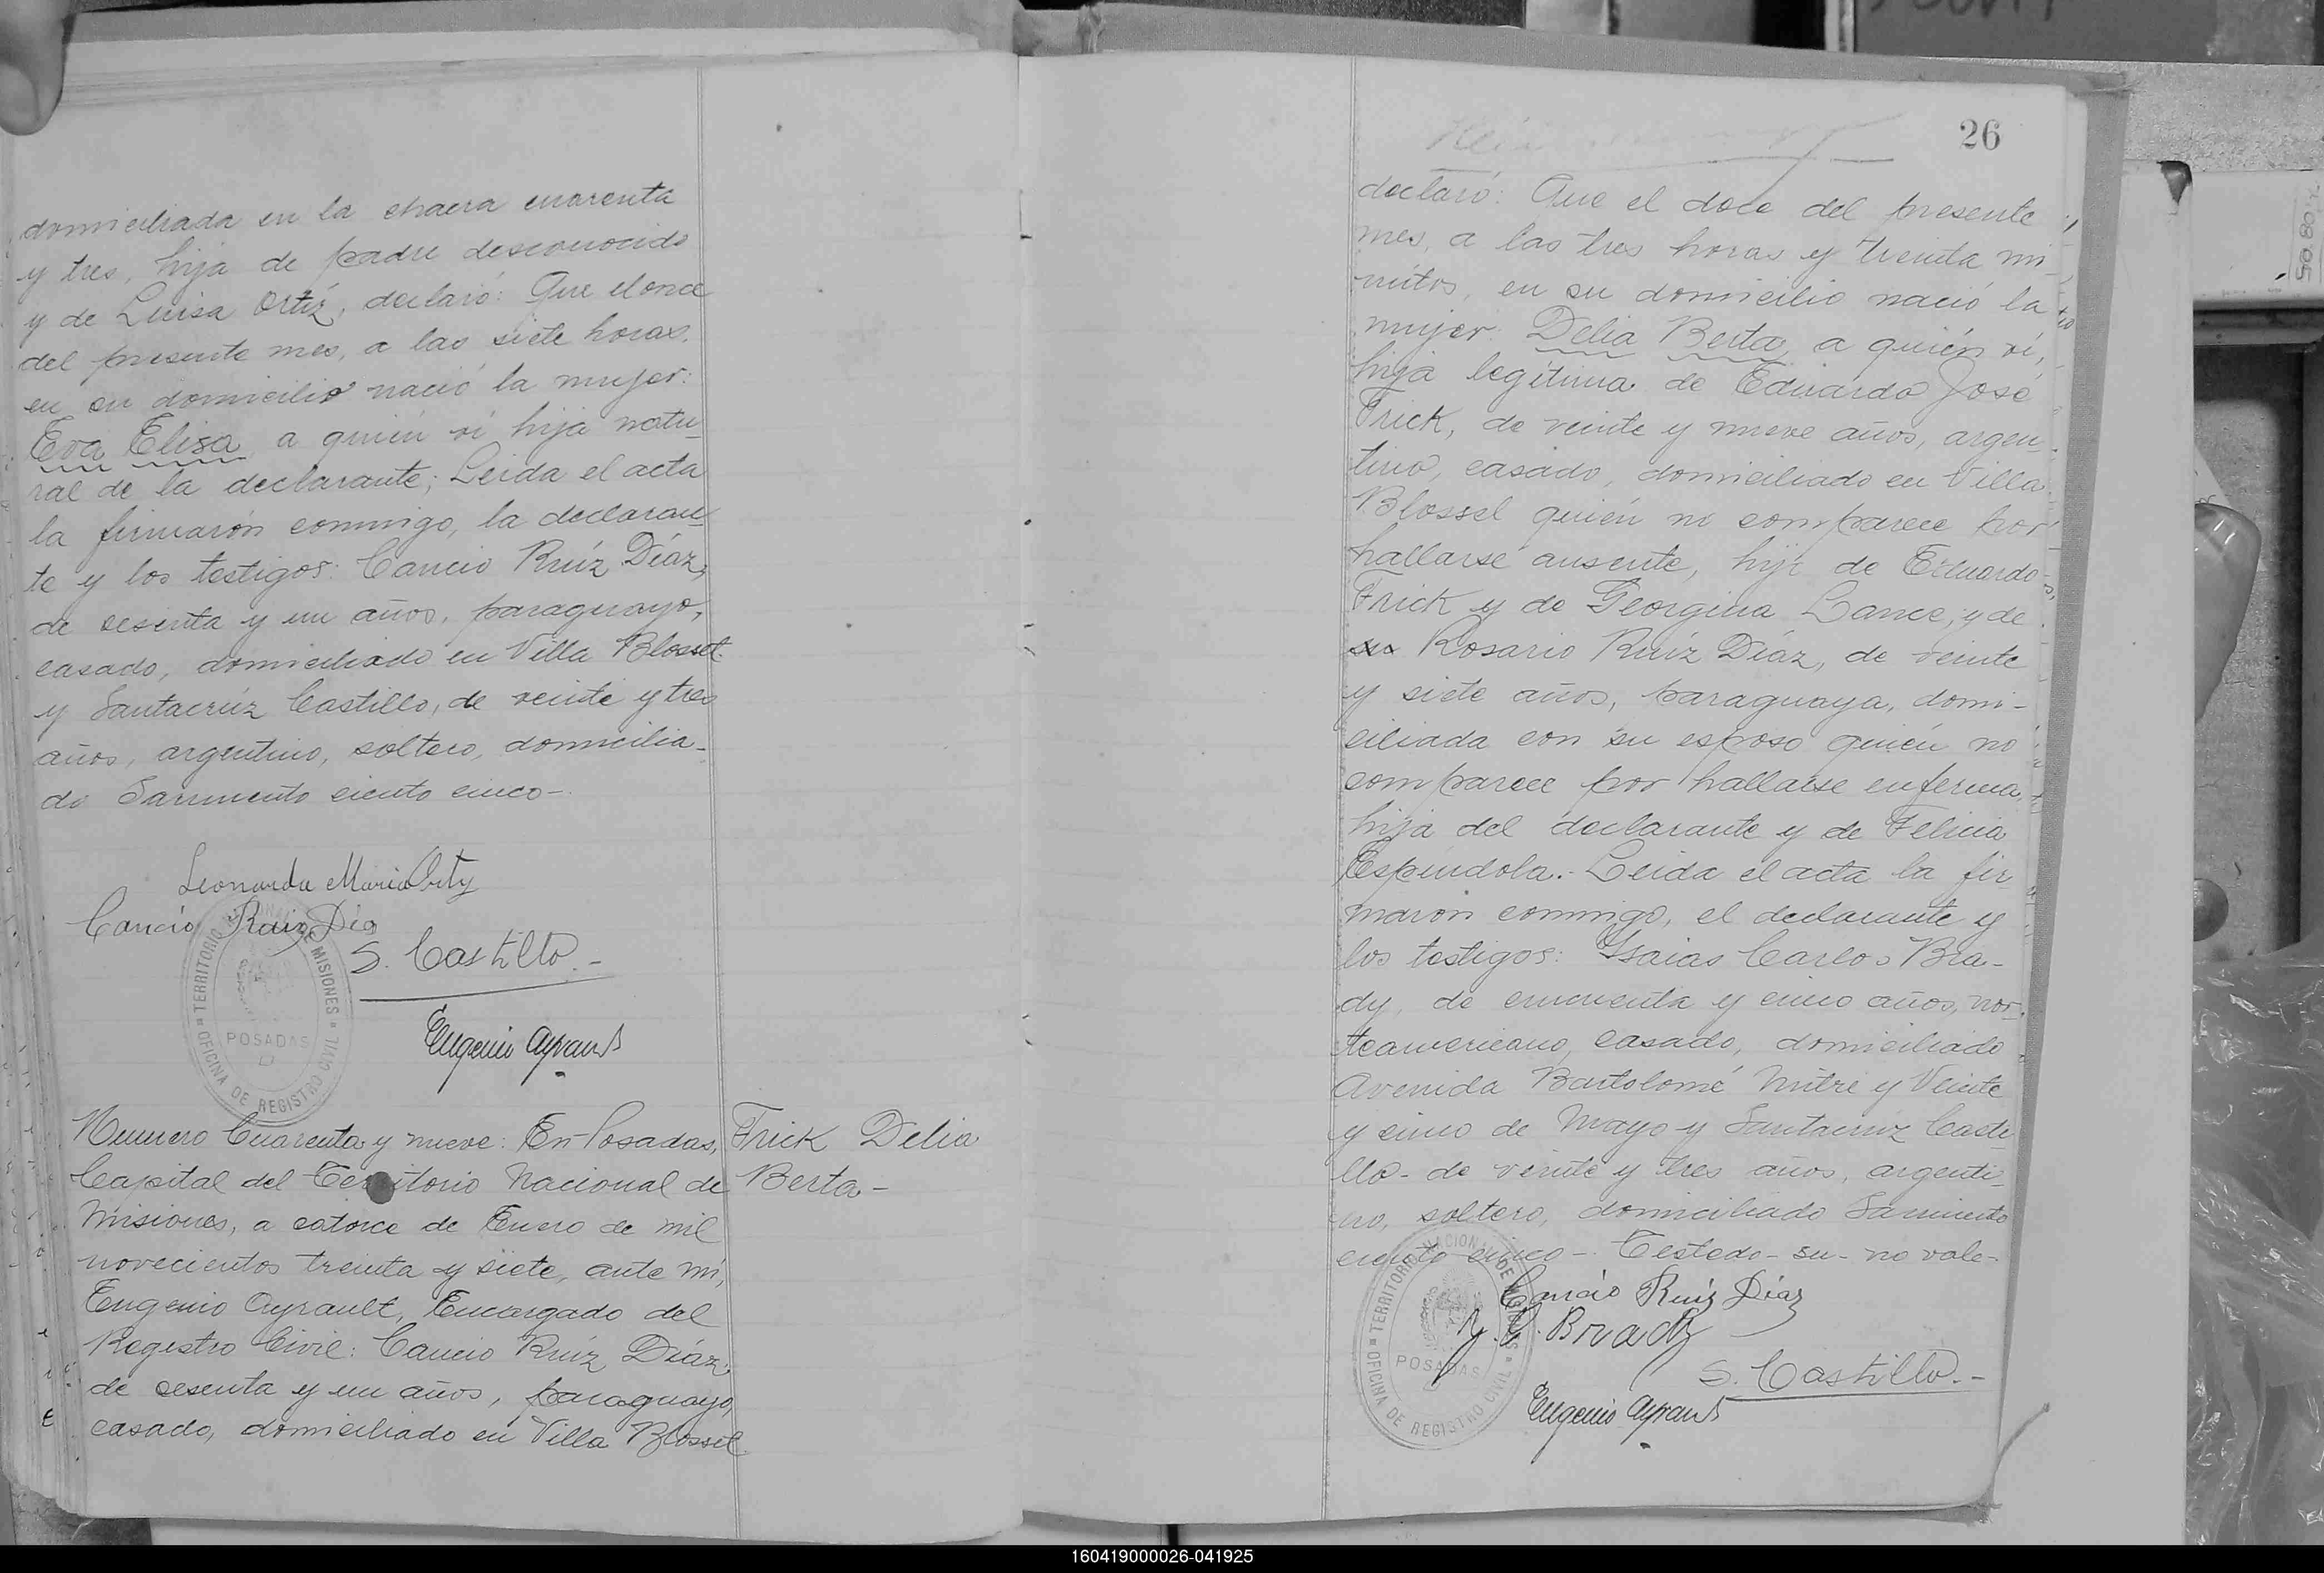 domiciliada en la chacra cuarenta
y tres, hija de padre desconocido
y de Luisa Ortíz, declaró: Que el once
del presente mes, a las siete horas,
en su domicilio nació la mujer:
Eva Elisa, a quién ví hija natu-
ral de la declarante; Leida el acta
la firmarón conmigo, la declaran-
te y los testigos: Cancio Ruíz Díaz,
de sesenta y un años, paraguayo,
casado, domiciliado en Villa Blosset
y Santacrúz Castillo, de veinte y tres
años, argentino, soltero, domicilia-
do Sarmiento ciento cinco-
Leonarda Maria Ortiz
Cancio Ruiz Dias
S. Castillo.-
Eugenio Ayrault
TERRITORIO NACIONAL DE MISIONES
POSADAS
OFICINA DE REGISTRO CIVIL
Numero Cuarenta y nueve: En Posadas,
Capital del Territorio Nacional de
Misiones, a catorce de Enero de mil
novecientos treinta y siete, ante mí,
Eugenio Ayrault, Encargado del
Registro Civil: Cancio Ruíz Díaz,
de sesenta y un años, paraguayo,
casado, domiciliado en Villa Blosset
Frick Delia
Berta-
26
declaró: Que el doce del presente
mes, a las tres horas y treinta mi-
nutos, en su domicilio nació la
mujer: Delia Berta, a quién ví,
hija legítima de Eduardo José
Frick, de veinte y nueve años, argen-
tino, casado, domiciliado en Villa
Blosset quién no comparece por
hallarse ausente, hijo de Eduardo
Frick y de Georgina Lance; y de
su Rosario Ruíz Díaz, de veinte
y siete años, paraguaya, domi-
ciliada con su esposo quién no
comparece por hallarse enferma,
hija del declarante y de Felicia
Espíndola.- Leida el acta la fir-
marón conmigo, el declarante y
los testigos: Ysaias Carlos Bra-
dy, de cincuenta y cinco años, nor-
teamericano, casado, domiciliado
Avenida Bartolomé Mitre y Veinte
y cinco de Mayo y Santacruz Casti
llo- de veinte y tres años, argenti-
no, soltero, domiciliado Sarmiento
ciento cinco-. Testado- su- no vale-
Cancio Ruiz Díaz
Y. C. Brady
S. Castillo.-
Eugenio Ayrault
TERRITORIO NACIONAL DE MISIONES
POSADAS
OFICINA DE REGISTRO CIVIL
160419000026-041925